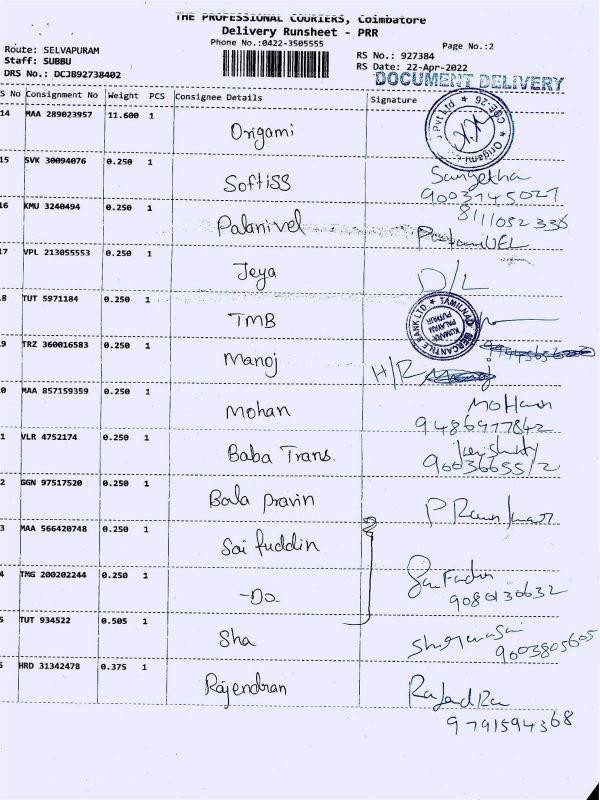 THE PROFESSIONAL COURIERS, Coimbatore
Delivery Runsheet - PRR
Phone No.:0422-3505555
Page No.:2
Route: SELVAPURAM
Staff: SUBBU
DRS No.: DCJB92738402
RS No.: 927384
RS Date: 22-Apr-2022
DOCUMENT DELIVERY
S No Consignment No Weight PCS Consignee Details Signature
14 MAA 289023957 11.600 1 Origami
Pvt Ltd ★ CBE-26 ★ Origami
15 SVK 30094076 0.250 1 Softiss Sangetha
9003145027
16 KMU 3240494 0.250 1 Palanivel 8111052336
PalaniVEL
17 VPL 213055553 0.250 1 Jeya D/L
8 TUT 5971184 0.250 1 TMB
TAMILNAD MERCANTILE BANK LTD
9 TRZ 360016583 0.250 1 Manoj H/R
0 MAA 857159359 0.250 1 Mohan Mohan
9486977842
1 VLR 4752174 0.250 1 Baba Trans
2 GGN 97517520 0.250 1 Bala pravin
3 MAA 566420748 0.250 1 Sai fuddin
4 TMG 200202244 0.250 1 -Do
9080130632
5 TUT 934522 0.505 1 Sha
9003805605
6 HRD 31342478 0.375 1 Rajendran
9791594368